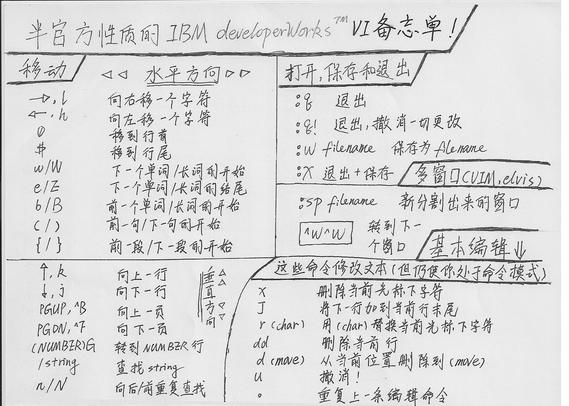 半官方性质的IBM developerWorks™ VI备忘单!
移动
◁◁ 水平方向 ▷▷
→, l 向右移一个字符
←, h 向左移一个字符
0 移到行首
$ 移到行尾
w/W 下一个单词/长词的开始
e/E 下一个单词/长词的结尾
b/B 前一个单词/长词的开始
( / ) 前一句/下一句的开始
{ / } 前一段/下一段的开始
↑, k 向上一行
↓, j 向下一行
PGUP, ^B 向上一页
PGDN, ^F 向下一页
(NUMBER)G 转到NUMBER行
/string 查找string
n/N 向后/前重复查找
△△垂直方向▽▽
打开,保存和退出
:q 退出
:q! 退出,撤消一切更改
:w filename 保存为filename
:x 退出+保存
多窗口(VIM, elvis)
:sp filename 新分割出来的窗口
^W^W 转到下一个窗口
基本编辑↓
这些命令修改文本(但仍使你处于命令模式)
x 删除当前光标下字符
J 将下一行加到当前行末尾
r (char) 用(char)替换当前光标下字符
dd 删除当前行
d (move) 从当前位置删除到(move)
u 撤消!
. 重复上一条编辑命令